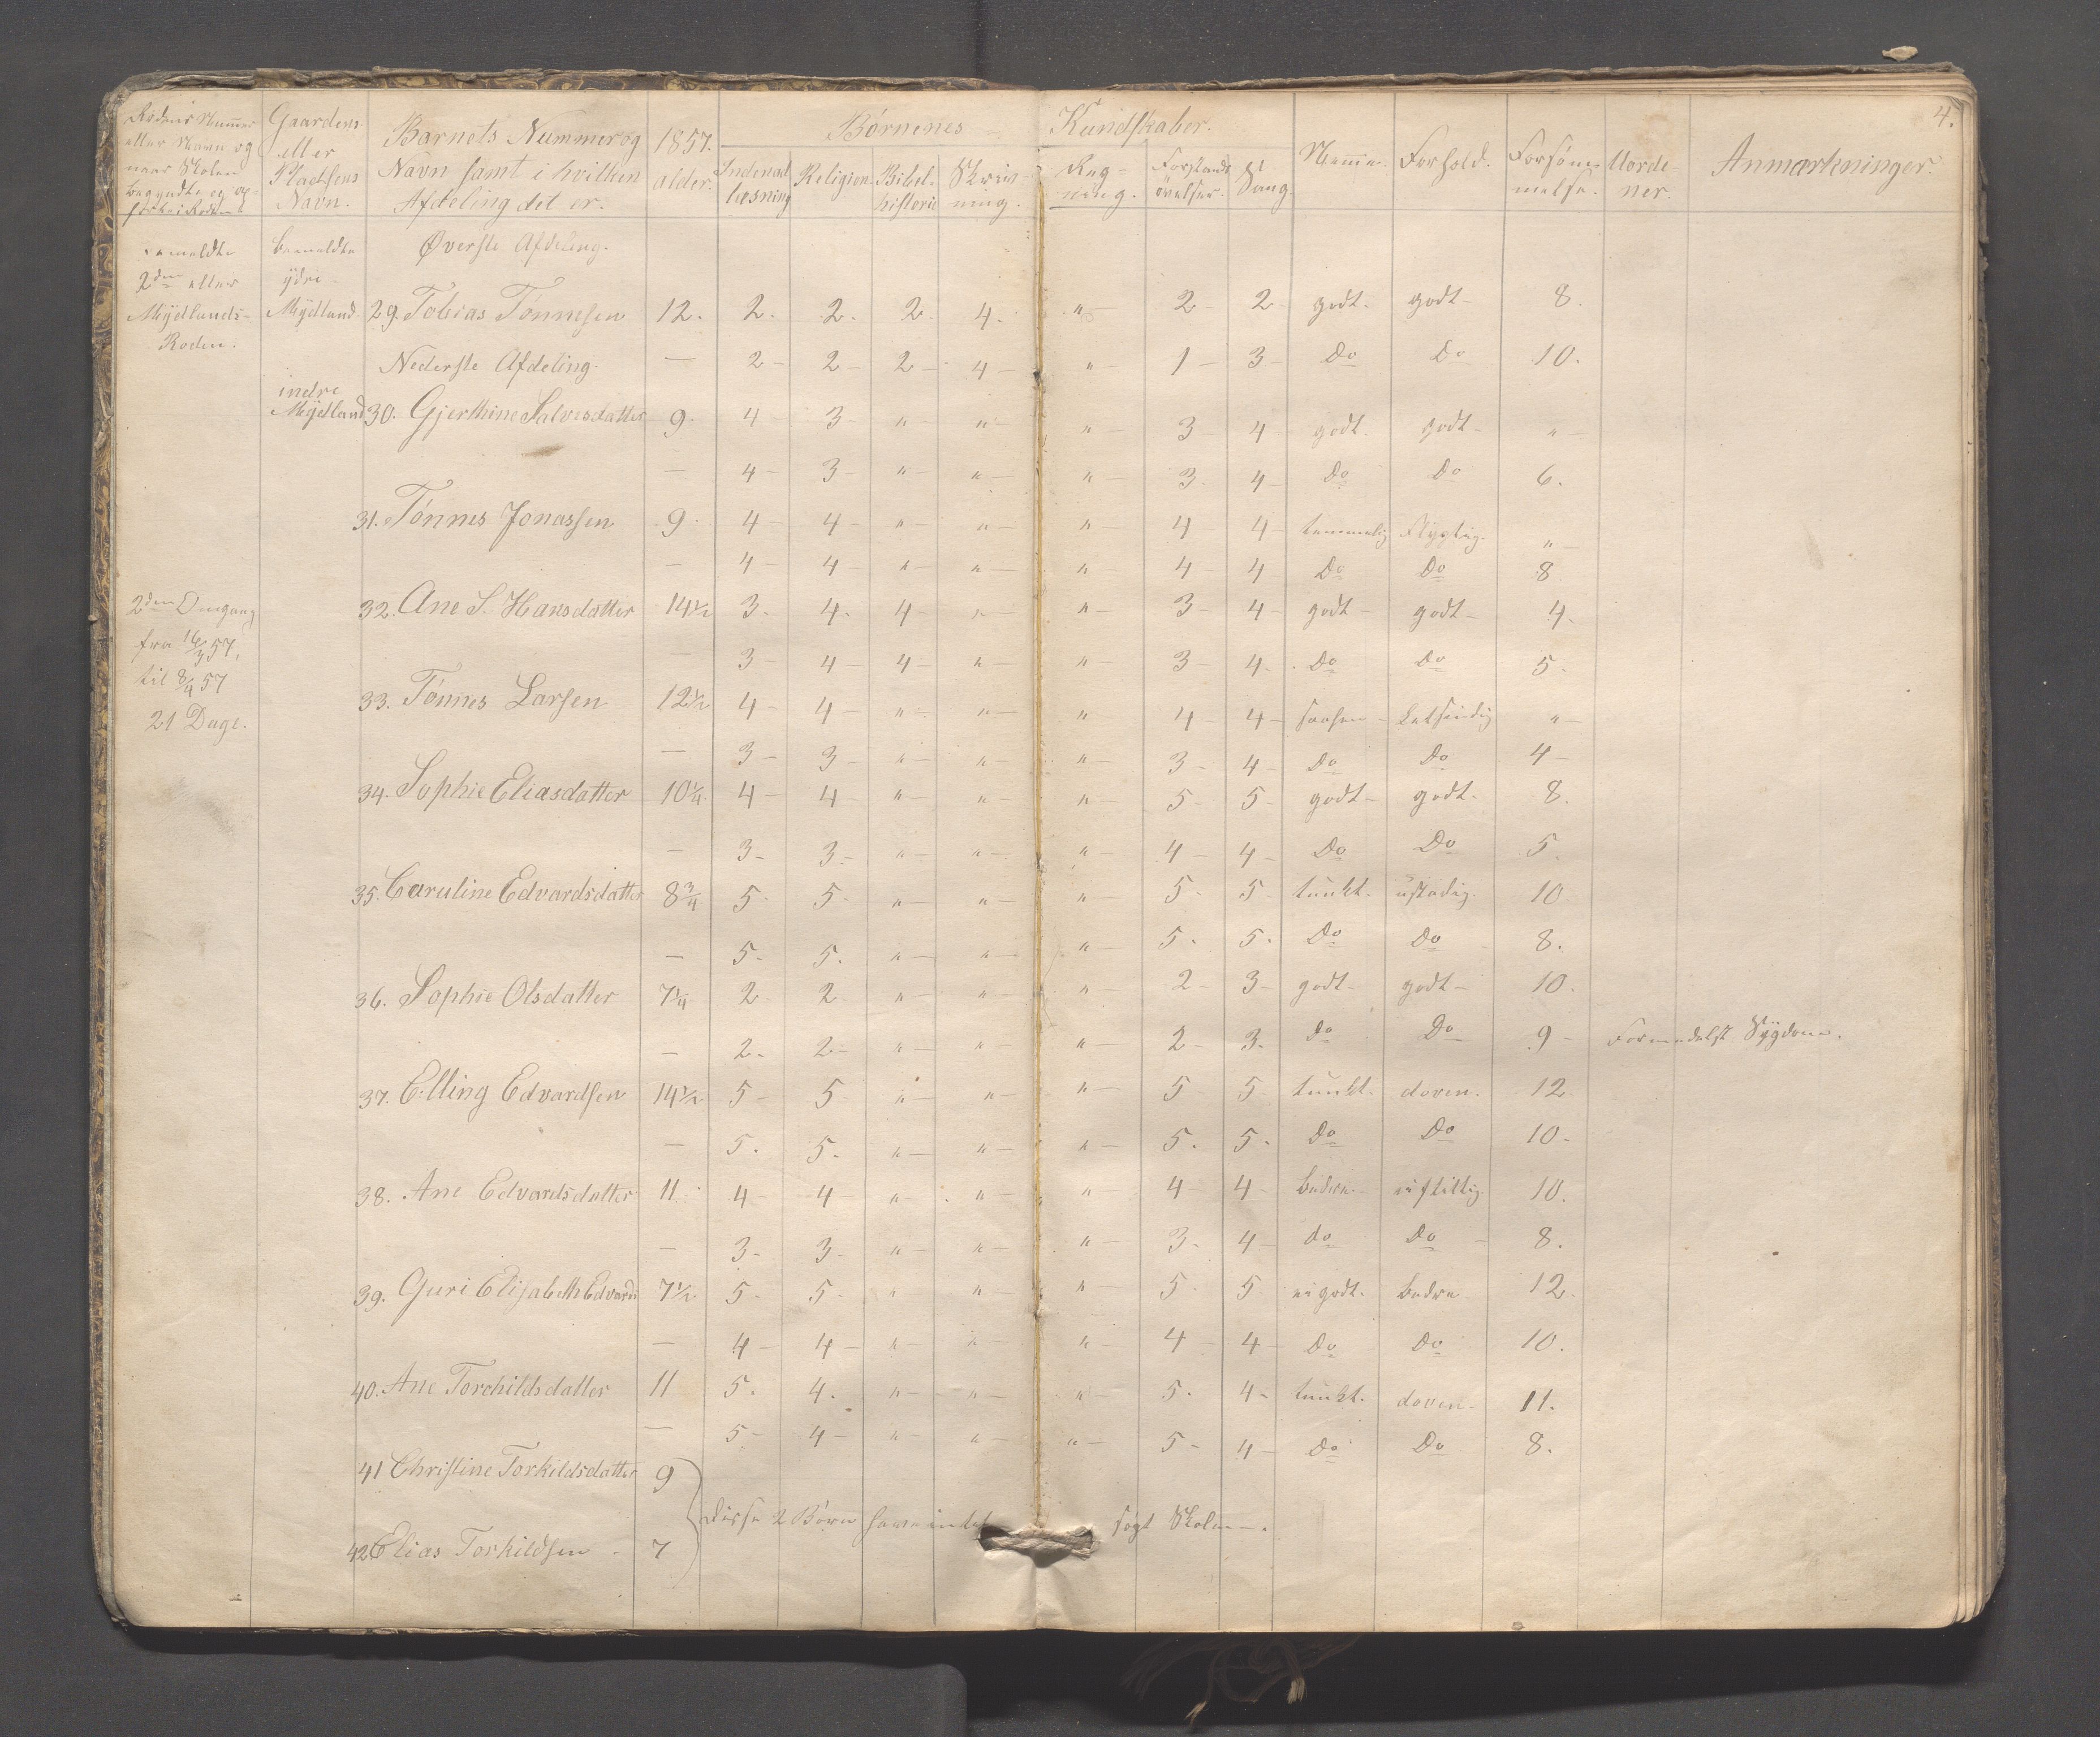 4.
Rodens Nummer eller Navn og naar Skolen begyndte og op- | Gaardens eller Pladsens Navn. | Barnets Nummer og Navn samt i hvilken Afdeling det er. | 1857. alder. | Børnenes Kundskaber. | Nemme. | Forhold. | Forsømmelse. | Uorde-ner. | Anmærkninger.
Indenad læsning | Religion. | Bibel-historie | Skriv-ning. | Reg-ning. | Forstands øvelser. | Sang.
bemeldte bemeldte Øverste Afdeling.
2den eller ydre
Mydlands- Mydland. 29. Tobias Tønnesen 12. 2. 2. 2. 4. " 2 2 godt. godt 8.
Roden.
Nederste Afdeling. — 2 2 2 4 " 1 3 Do Do 10.
indre
Mydland 30. Gjerthine Salvesdatter 9. 4 3 " " " 3 4 godt. godt "
— 4 3 " " " 3 4 Do Do 6.
31. Tønnes Jonassen 9. 4 4 " " " 4 4 temmelig Flygtig. "
— 4 4 " " " 4 4 Do Do 8
2den Omgang 32. Ane S. Hansdatter 14½ 3. 4. 4 " " 3 4 godt godt 4.
fra 16/3 57,
— 3 4 4 " " 3 4. Do Do 5.
til 8/4 57
33. Tønnes Larsen 12½ 4 4 " " " 4 4 saasen Letsindig "
21 Dage.
— 3 3 " " " 3 4 Do Do 4
34. Sophie Eliasdatter 10¼ 4 4 " " " 5 5 godt godt. 8.
— 3 3 " " " 4 4 Do Do 5.
35. Caruline Edvardsdatter 8¾ 5. 5. " " " 5 5 tungt. ustadig. 10
— 5. 5. " " " 5. 5. Do Do 8.
36. Sophie Olsdatter 7¼ 2 2 " " " 2 3 godt godt 10.
— 2. 2 " " " 2 3. do Do 9 Formedelst Sygdom.
37. Elling Edvardsen 14½ 5 5 " " " 5 5 tungt. doven. 12
— 5. 5. " " " 5. 5. Do Do 10.
38. Ane Edvardsdatter 11 4 4 " " " 4 4 bedre. ei flittig. 10.
— 3. 3. " " " 3. 4 do Do 8.
39. Guri Elisabeth Edvards 7½ 5. 5. " " " 5 5 ei godt. bedre 12.
— 4 4 " " " 4 4 Do Do 10.
40. Ane Torchildsdatter 11 5. 4. " " " 5. 4. tungt. doven 11.
— 5 4 " " " 5 4 Do Do 8.
41 Christine Torkildsdatter 9
Disse 2 Børn have intet søgt Skolen.
42 Elias Torkildsen 7